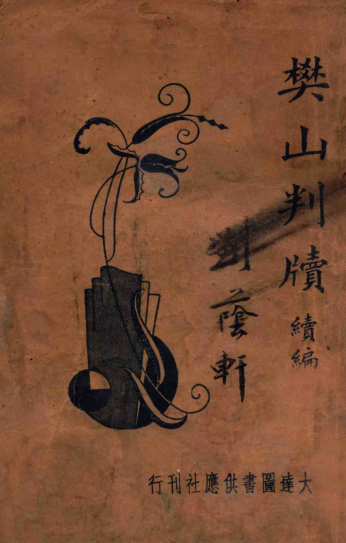 樊山判牘
續編
劉蔭軒
大達圖書供應社刊行